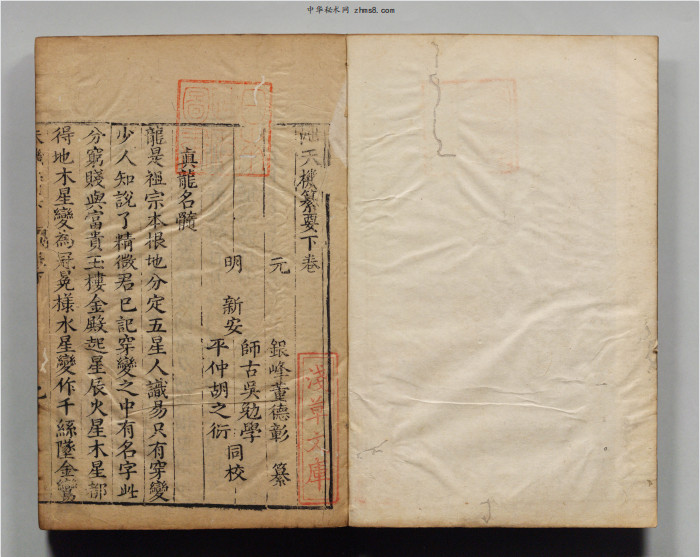 中华秘术网 zhms8.com
泄天機纂要下卷
元 銀峰董德彰 纂
明 新安 師古吳勉學
平仲胡之衍 同校
真龍名髓
龍是祖宗本根地分定五星人識易只有穿變
少人知說了精微君已記穿變之中有名字此
分窮賤與富貴玉樓金殿起星辰火星木星部
得地木星變為冠冕樣水星變作千絲墜金
文庫